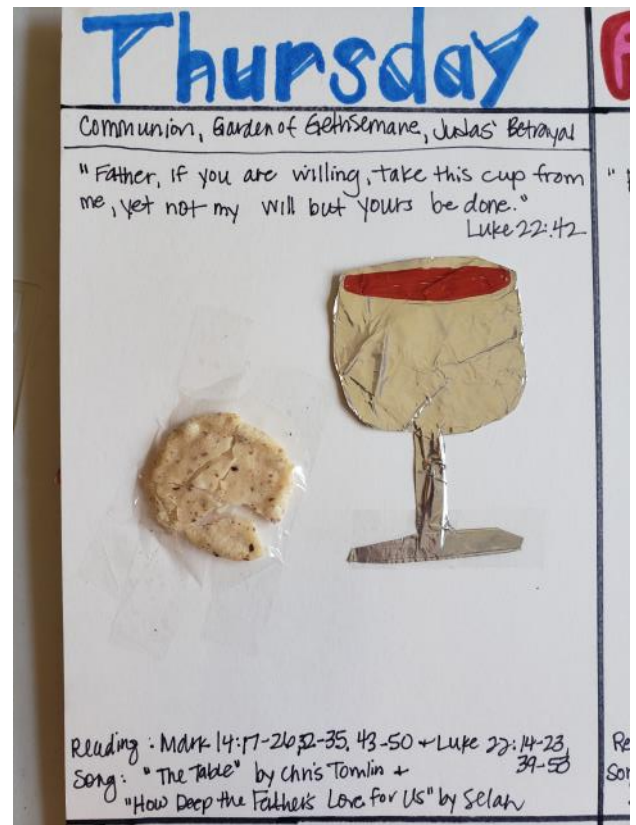 Thursday
Communion, Garden of Gethsemane, Judas' Betrayal
"Father, if you are willing, take this cup from
me, yet not my will but yours be done."
Luke 22:42
Reading: Mark 14:17-26, 32-35, 43-50 + Luke 22:14-23,
39-53
Song: "The Table" by Chris Tomlin +
"How Deep the Father's Love for Us" by Selah